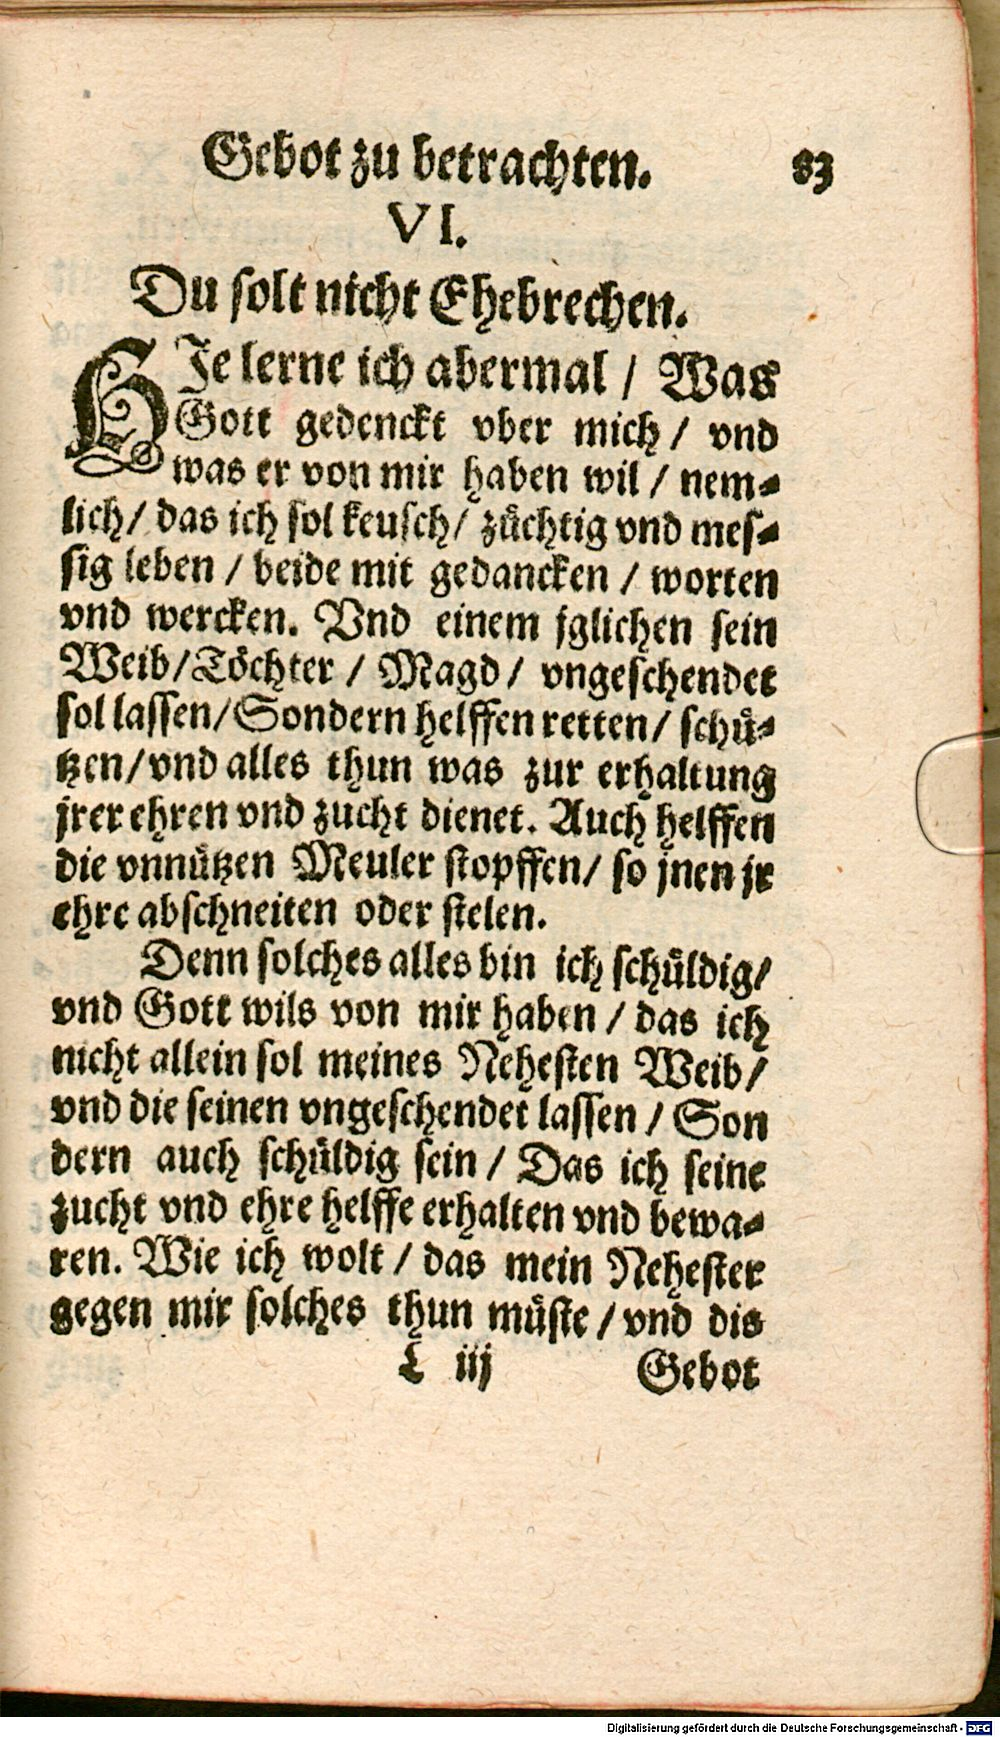 Gebot zu betrachten. 83
VI.
Du solt nicht Ehebrechen.
HJe lerne ich abermal / Was
Gott gedenckt vber mich / vnd
was er von mir haben wil / nem-
lich / das ich sol keusch / züchtig vnd mes-
sig leben / beide mit gedancken / worten
vnd wercken. Vnd einem jglichen sein
Weib / Töchter / Magd / vngeschendet
sol lassen / Sondern helffen retten / schü-
tzen / vnd alles thun was zur erhaltung
jrer ehren vnd zucht dienet. Auch helffen
die vnnützen Meuler stopffen / so jnen jr
ehre abschneiten oder stelen.
Denn solches alles bin ich schüldig /
vnd Gott wils von mir haben / das ich
nicht allein sol meines Nehesten Weib /
vnd die seinen vngeschendet lassen / Son
dern auch schüldig sein / Das ich seine
zucht vnd ehre helffe erhalten vnd bewa-
ren. Wie ich wolt / das mein Nehester
gegen mir solches thun müste / vnd dis
L iij Gebot
Digitalisierung gefördert durch die Deutsche Forschungsgemeinschaft - DFG